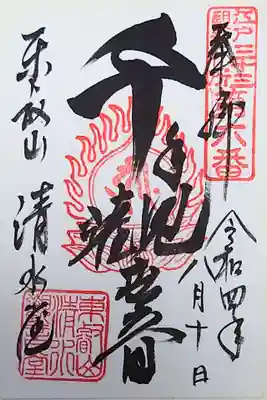 奉拝
令和四年
八月十日
千手観世音
東叡山
清水堂
東叡山
清水
堂
江戸三十三
第六番